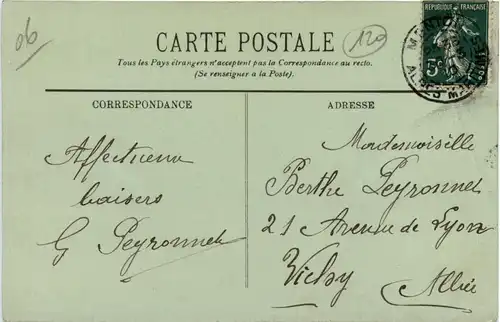 06
CARTE POSTALE
120
RÉPUBLIQUE FRANÇAISE
5c
Tous les Pays étrangers n'acceptent pas la Correspondance au recto.
(Se renseigner à la Poste).
CORRESPONDANCE
Affectueux
baisers
G Peyronnet
ADRESSE
Mademoiselle
Berthe Peyronnet
21 Avenue de Lyon
Vichy
Allier